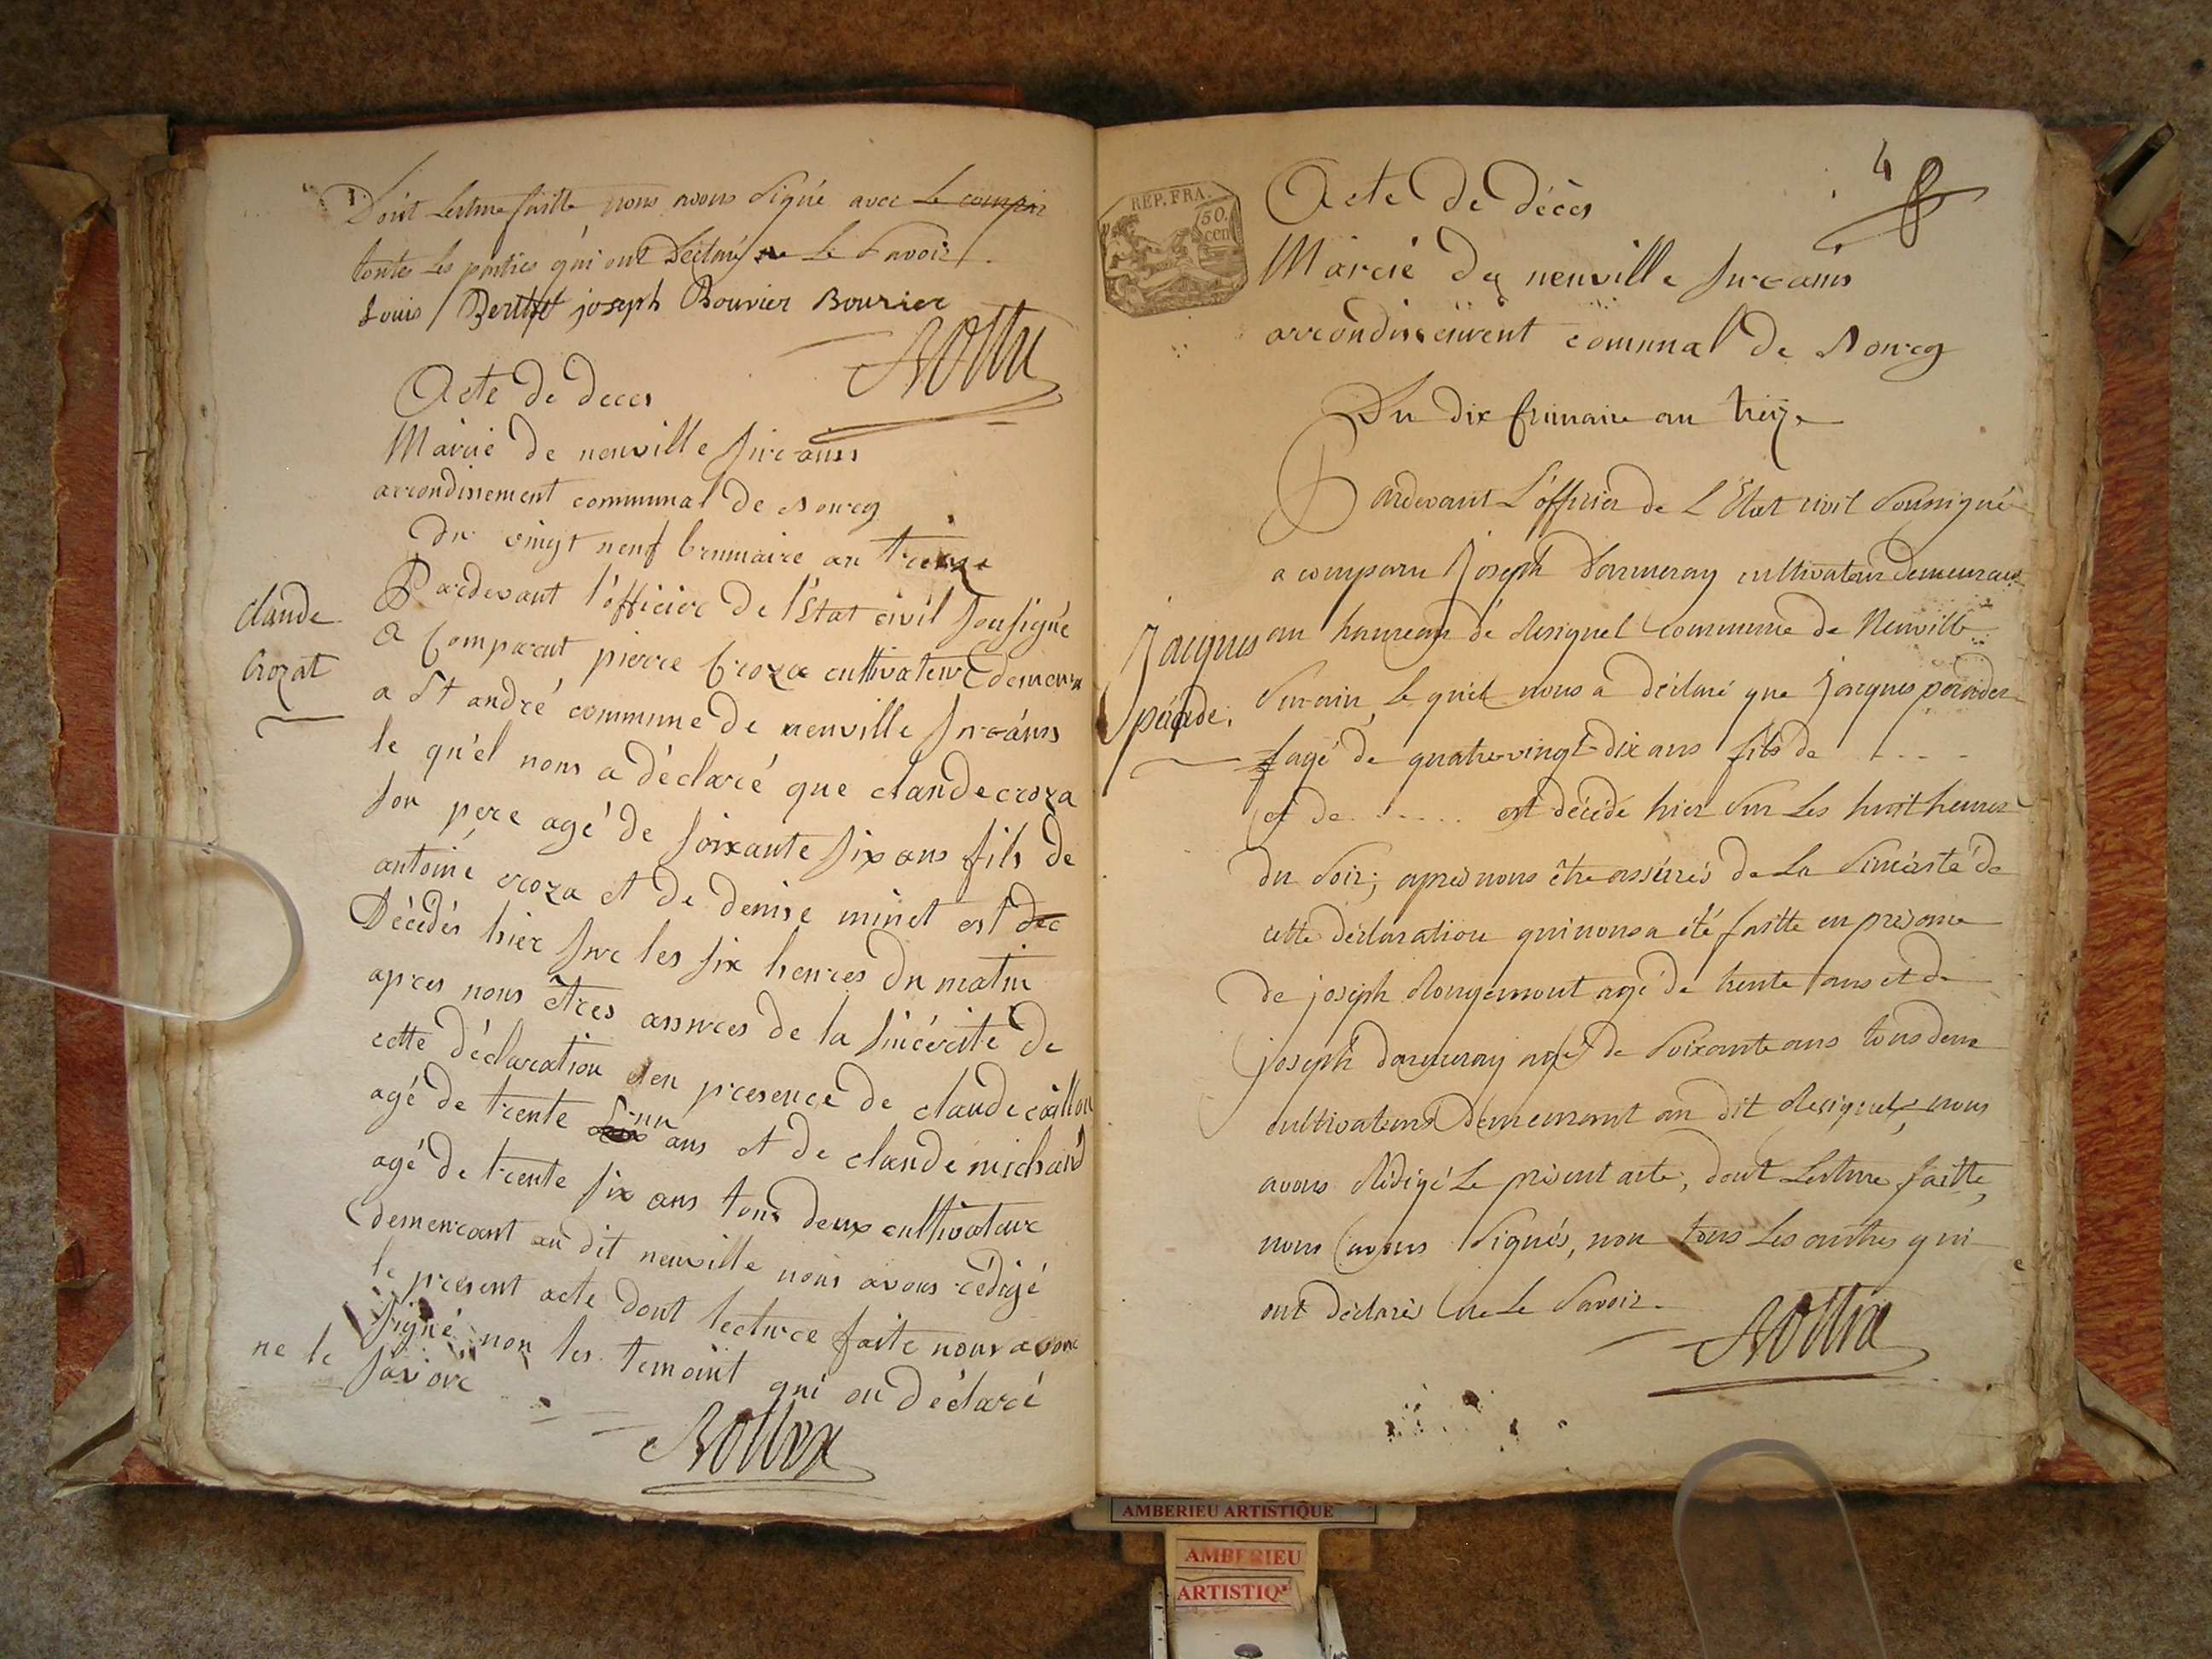 Dont lecture faitte nous avons Signé avec Le compar
toutes Les parties qui ont Déclaré ne Le Savoir
Louis Berthet joseph Bouvier Bouvier
Acte De Deces
Mairie De neuville Sur ains
arrondissement communal De
Du vingt neuf brumaire an treize
Pardevant l'officier De l'Etat civil Sousigné
A Comparut pierre Croza cultivateur Demeura
a St andré commune De neuville Sur ains
le qu'el nous a déclaré que claude croza
Son pere agé De Soixante Six ans fils De
antoine croza et De Denise minet est Dec
Décédés hier Sur les Six heures Du matin
apres nous êtres assures De la Sincérité De
cette Déclaration en presence De claude caillon
agé De trente Sinn ans et De claude michaud
agé De trente Six ans tous Deux cultivateur
Demeurant au Dit neuville nous avons rédigé
le present acte Dont lecture faite nous avons
Signé non les temoint qui on Déclaré
ne le Savoir
Claude
Crozat
4
REP. FRA.
50
cent
Acte De Décès
Mairie De neuville Sur ains
arrondissement comunal De
Du dix frimaire an treize
Pardevant L'officier de L'Etat civil Soussigné
a comparu Joseph Darmeray cultivateur Demeurant
au hameau de Resignel Commune de Neuville
Sur ain, Le quel nous a déclaré que Jacques
agé de quatrevingt dix ans fils de . . . .
et de . . . . . . est décédé hier Sur Les huit heures
du Soir; apres nous être assurés De La Sincérité de
cette déclaration qui nous a été faitte en présence
de joseph Rougemont agé de trente ans et de
joseph darmeray agé de Soixante ans tous deux
cultivateurs Demeurant au dit Resignel, nous
avons Rédigé Le présent acte, dont Lecture faitte,
nous avons Signés, non tous Les autres qui
ont déclarés ne Le Savoir.
Jacques
AMBERIEU ARTISTIQUE
AMBERIEU
ARTISTIQ